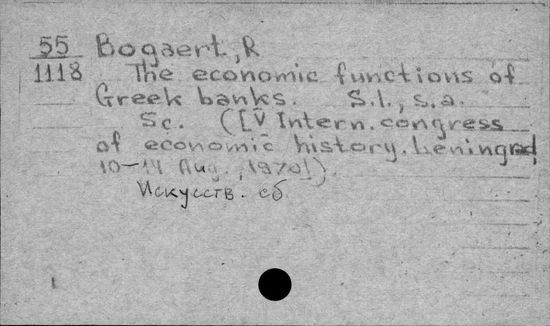 55 Bogaert, R
1118 The economic functions of
Greek banks. S.l., s.a.
5c. (IV Intern. congress
of economic history. Leningrad
10-14 Aug., 1970).
Искусств. сб